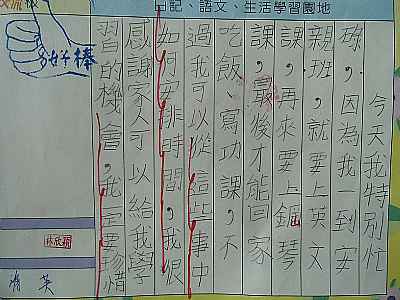 日記、語文、生活學習園地
今天我特別忙
碌，因為我一到安
親班，就要上英文
課，再來要上鋼琴
課，最後才能回家
吃飯、寫功課，不
過我可以從這些事中
如何安排時間，我很
感謝家人可以給我學
習的機會，我一定要珍惜
好棒
林欣穎